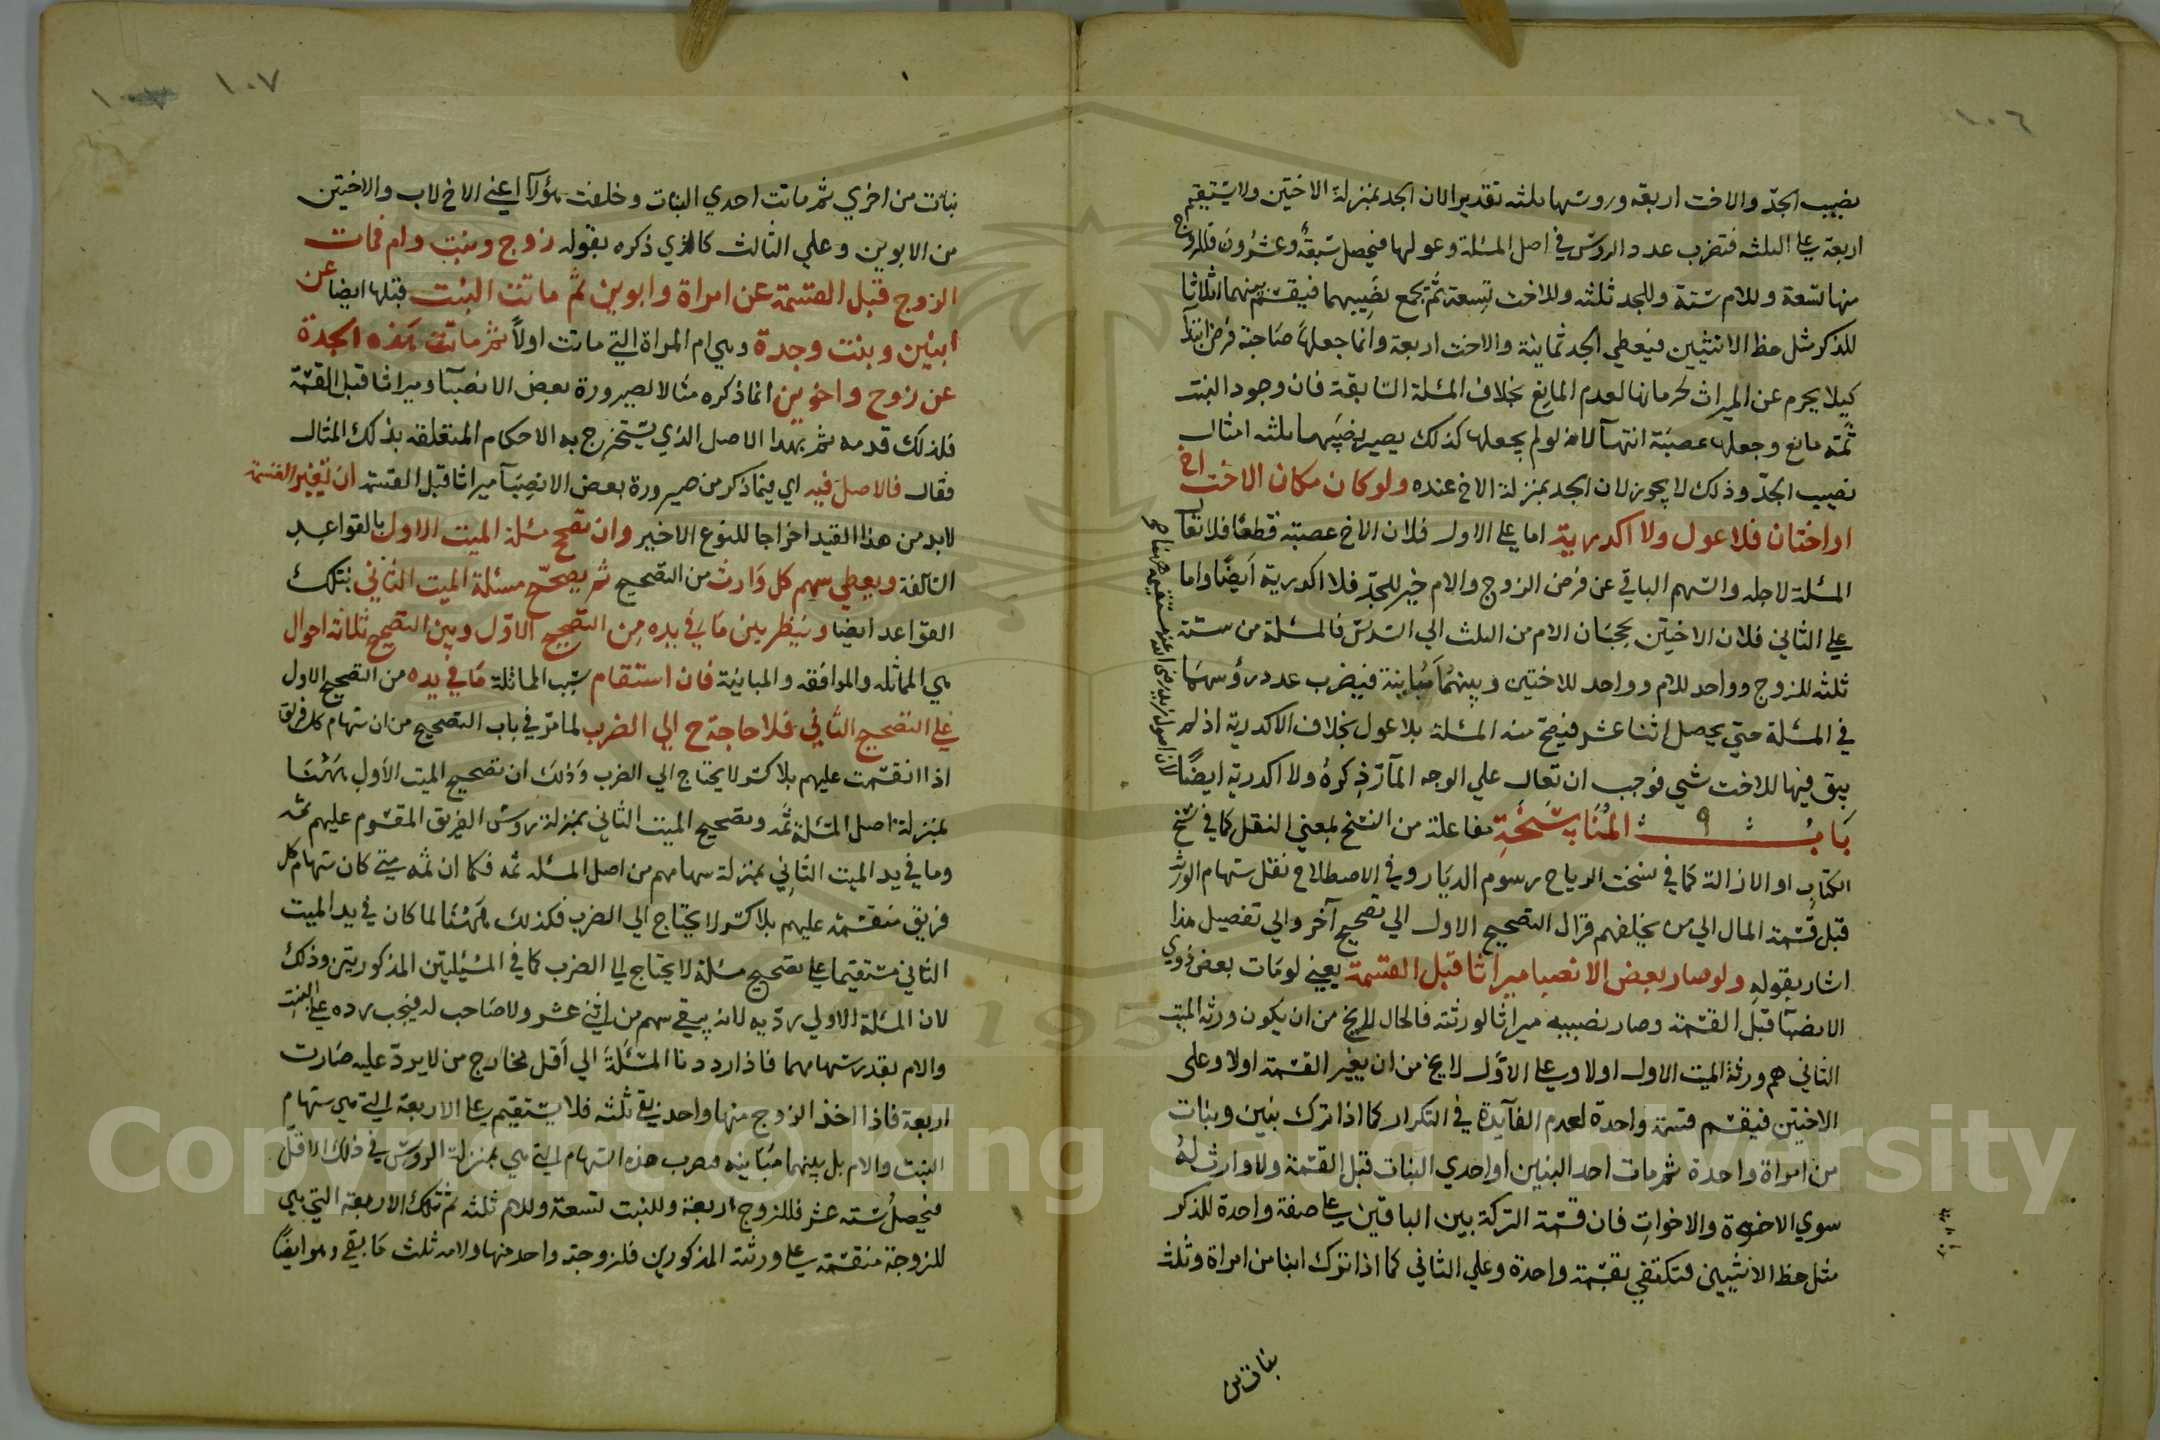 ١٠٦
نصيب الجدّ والاخت اربعة وروسها ثلثه تقديرا لان الجد بمنزلة الاختين ولا يستقيم
اربعة على الثلثه فتضرب عدد الروس في اصل المسئلة وعولها فيحصل سبعة وعشرون فللزوج
منها تسعة وللام ستة وللجد ثلثه وللاخت تسعة ثم يجمع نصيبهما فيقسم بينهما اثلاثا
للذكر مثل حظ الانثيين فيعطي الجد ثمانية والاخت اربعة وانما جعلها صاحبة فرض ابتدآ
كيلا يحرم عن الميراث لحرمانها لعدم المانع بخلاف المسئلة السابقة فان وجود البنت
ثمّه مانع وجعلها عصبة انتهآ لانه لو لم يجعلها كذلك يصير نصيبها ثلثه امثال
نصيب الجدّ وذلك لا يجوز لان الجد بمنزلة الاخ عنده ولو كان مكان الاخت اخ
او اختان فلا عول ولا اكدرية اما على الاول فلان الاخ عصبة قطعًا فلا تعال
المسئلة لاجله والسهم الباقي عن فرض الزوج والام خير للجدّ فلا اكدرية ايضًا واما
على الثاني فلان الاختين يحجبان الام من الثلث الي السدس فالمسئلة من ستة
ثلثه للزوج وواحد للام وواحد للاختين وبينهما مباينة فيضرب عدد رؤسهما
في المسئلة حتي يحصل اثنا عشر فيصح منه المسئلة بلا عول بخلاف الاكدرية اذ لم
يبق فيها للاخت شي فوجب ان تعال علي الوجه المآرّ ذكرهُ ولا اكدرية ايضًا
بَابُ ٩ المُنَاسَخَةِ مفاعلة من النسخ بمعني النقل كما في نسخ
الكتاب او الازالة كما في نسخت الرياح رسوم الديار وفي الاصطلاح نقل سهام الورثة
قبل قسمة المال الي من يخلفهم التصحيح الاول الي تصحيح آخر والي تفصيل هذا
اشار بقوله ولو صار بعض الانصبا ميراثا قبل القسمة يعني لو مات بعض ذوي
الانصبآ قبل القسمة وصار نصيبه ميراثا لورثته فالحال لا يخ من ان يكون ورثة الميت
الثاني هم ورثة الميت الاول اولا وعلى الاوّل لا يخ من ان يغير القسمة اولا وعلى
الاختين فيقسم قسمة واحدة لعدم الفآيدة في التكرار كما اذا ترك بنين وبنات
من امراة واحدة ثم مات احد البنين او احدي البنات قبل القسمة ولا وارث لهُ
سوي الاخوة والاخوات فان قسمة التركة بين الباقين على صفة واحدة للذكر
مثل حظ الانثيين فتكتفي بقسمة واحدة وعلي الثاني كما اذا ترك ابنا من امراة وثلث
بنات من
١٠٧
بنات من اخري ثم ماتت احدي البنات وخلفت هؤلآ اعني الاخ لاب والاختين
من الابوين وعلي الثالث كالذي ذكره بقوله زوج وبنت وام فمات
الزوج قبل القسمة عن امراة وابوين ثم ماتت البنت قبلها ايضا عن
ابنين وبنت وجدة وهي ام المراة التي ماتت اولاً ثم ماتت هذه الجدة
عن زوج واخوين انما ذكره مثالا لصيرورة بعض الانصبآ ميراثا قبل القسمة
فلذلك قدمه ثم بهذا الاصل الذي يستخرج به الاحكام المتعلقه بذلك المثال
فقال فالاصل فيه اي فيما ذكر من صيرورة بعض الانصبآ ميراثا قبل القسمة ان تغير القسمة
لابد من هذا القيد اخراجا للنوع الاخير وان تصح مسئلة الميت الاول بالقواعد
السّالفة ويعطي سهم كل وارث من التصحيح ثم يصحّح مسئلة الميت الثاني بتلك
القواعد ايضا وينظر بين ما في يده من التصحيح الاوّل وبين التصحيح ثلاثة احوال
هي المماثله والموافقه والمباينة فان استقام بسبب المماثلة ما في يده من التصحيح الاول
على التصحيح الثاني فلا حاجة ح الي الضرب لما مرّ في باب التصحيح من ان سهام كل فريق
اذا انقسمت عليهم بلا كسر لا يحتاج الي الضرب وذلك ان تصحيح الميت الاول ههُنا
بمنزلة اصل المسئلة ثمّه وتصحيح الميت الثاني بمنزلة روس الفريق المقسوم عليهم ثمه
وما في يد الميت الثاني بمنزلة سهامهم من اصل المسئله ثمه فكما ان ثمه متي كان سهام كل
فريق منقسمة عليهم بلا كسر لا يحتاج الي الضرب فكذلك ههُنا لما كان في يد الميت
الثاني مستقيما على تصحيح مسئلة لا يحتاج الى الضرب كما في المسئلتين المذكورتين وذلك
لان المسئلة الاولي ردّيه لانه يبقي سهم من اثني عشر ولا صاحب له فيجب رده على البنت
والام بقدر سهامهما فاذا رددنا المسئلة الي اقل مخارج من لا يردّ عليه صارت
اربعة فاذا اخذ الزوج منها واحد بقي ثلثه فلا يستقيم على الاربعة التي هي سهام
البنت والام بل بينهما مباينه فضرب هذه السهام التي هي بمنزلة الروس في ذلك الاقلّ
فيحصل ستة عشر فللزوج اربعة وللبنت تسعة وللام ثلثه ثم تلك الاربعة التي هي
للزوجة منقسمة على ورثته المذكورين فلزوجته واحد منها ولامه ثلث ما بقي وهو ايضًا
Copyright © King Saud University
1957